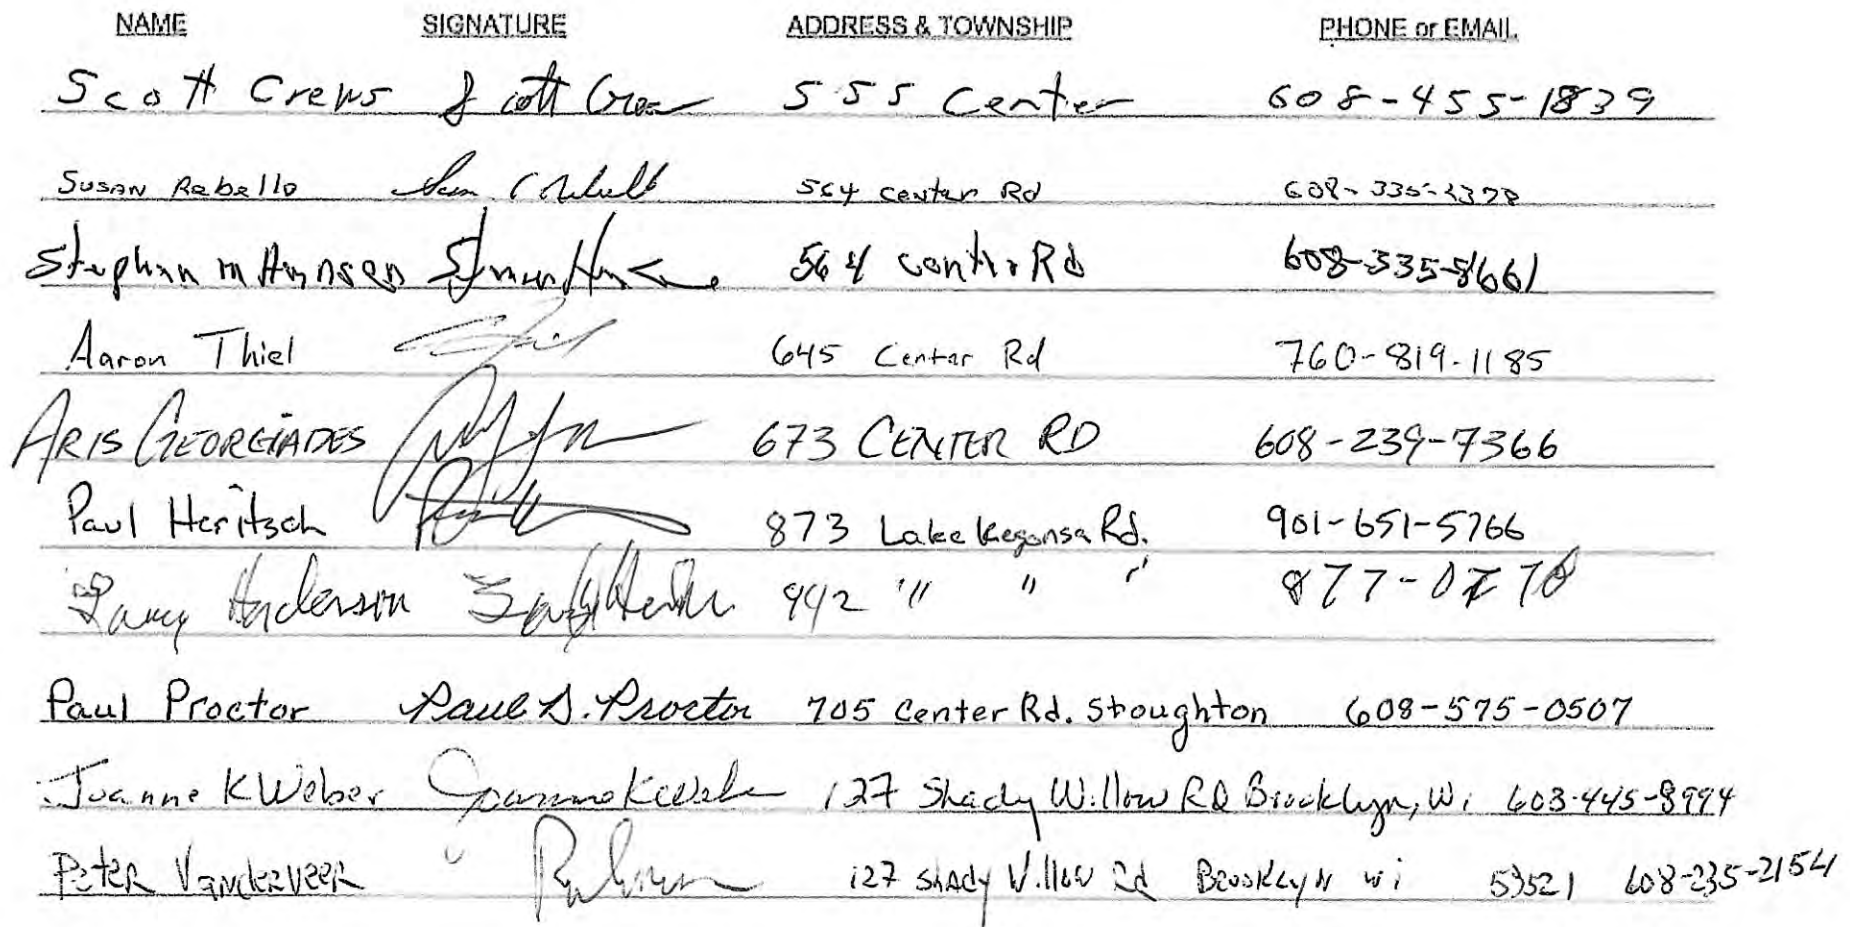 NAME SIGNATURE ADDRESS & TOWNSHIP PHONE or EMAIL
Scott Crews Scott Crews 555 Center 608-455-1839
Susan Rebello 564 Center Rd 608-335-3378
Stephen M Hansen 564 Center Rd 608-335-8661
Aaron Thiel 645 Center Rd 760-819-1185
ARIS GEORGIADES 673 CENTER RD 608-239-7366
Paul Heritsch 873 Lake Kegonsa Rd. 901-651-5766
Larry Henderson 942 " " " 877-0770
Paul Proctor Paul D. Proctor 705 Center Rd. Stoughton 608-575-0507
Joanne K Weber Joanne K Weber 127 Shady Willow Rd Brooklyn, Wi 603-445-8994
Peter Vanderveer 127 Shady Willow Rd Brooklyn Wi 53521 608-235-2154